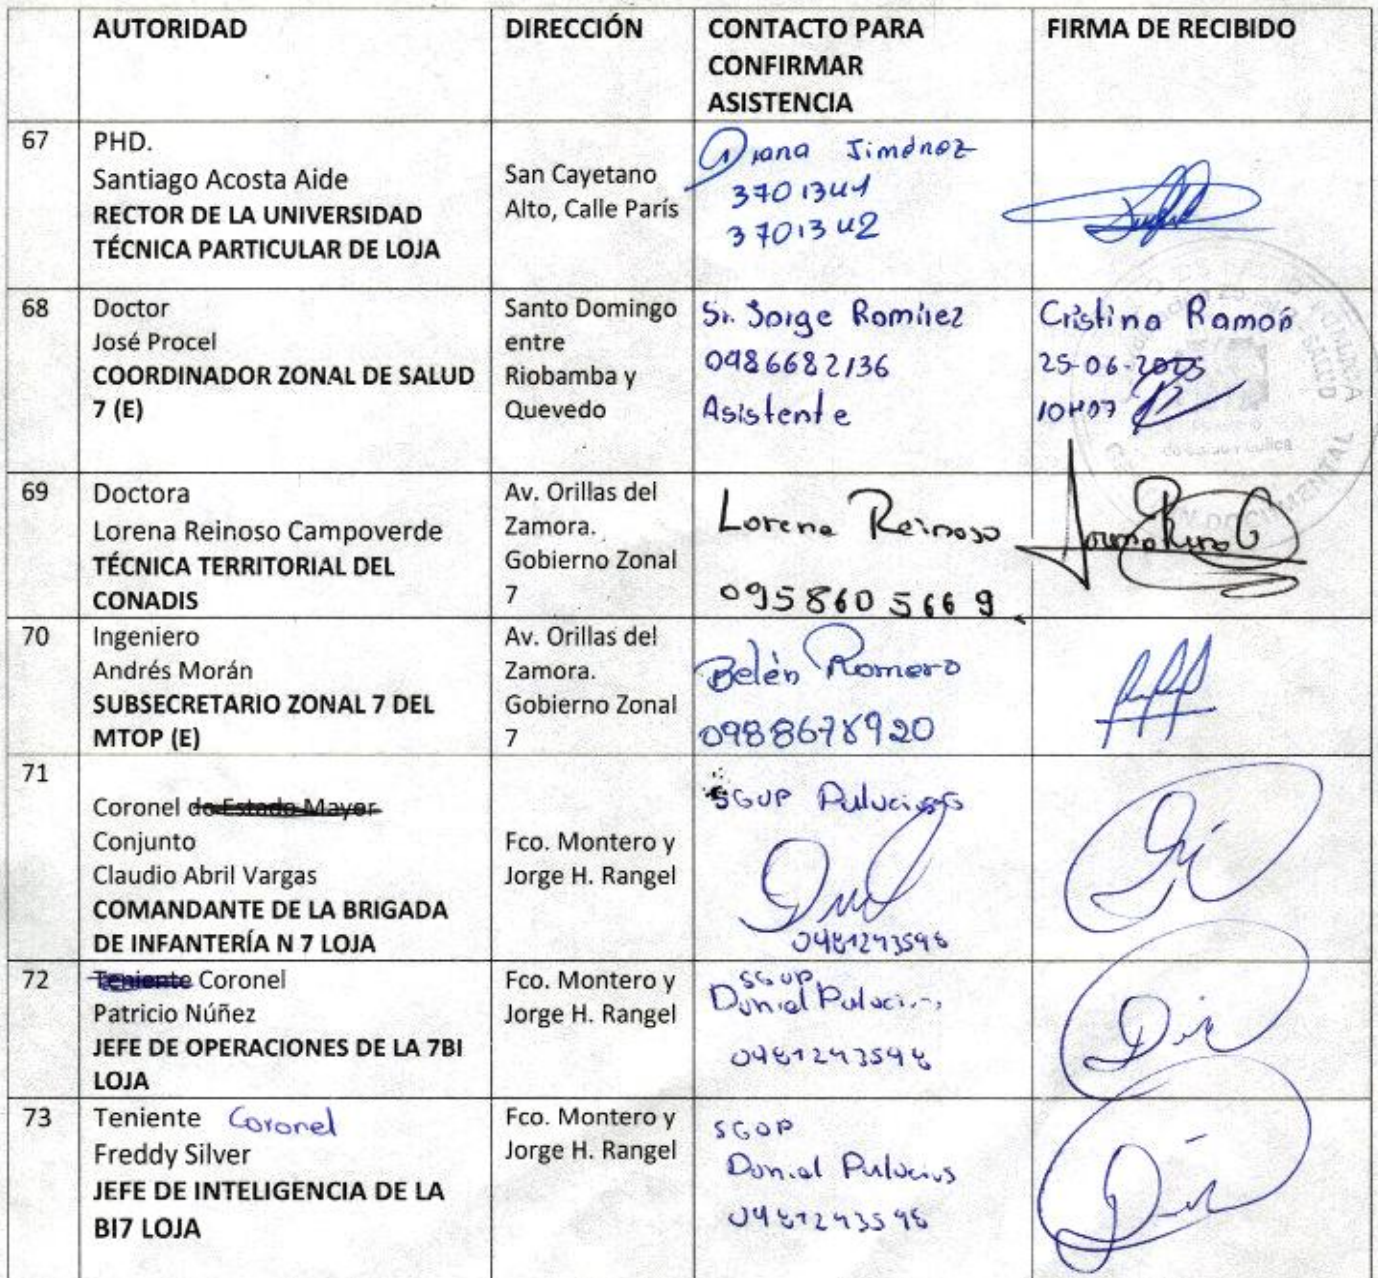 AUTORIDAD
DIRECCIÓN
CONTACTO PARA
CONFIRMAR
ASISTENCIA
FIRMA DE RECIBIDO
67
PHD.
Santiago Acosta Aide
RECTOR DE LA UNIVERSIDAD
TÉCNICA PARTICULAR DE LOJA
San Cayetano
Alto, Calle París
Diana Jiménez
3701341
3701342
68
Doctor
José Procel
COORDINADOR ZONAL DE SALUD
7 (E)
Santo Domingo
entre
Riobamba y
Quevedo
Sr. Jorge Romírez
0486682136
Asistente
Cristina Ramón
25-06-2025
10H07
69
Doctora
Lorena Reinoso Campoverde
TÉCNICA TERRITORIAL DEL
CONADIS
Av. Orillas del
Zamora.
Gobierno Zonal
7
Lorena Reinoso
0958605669
70
Ingeniero
Andrés Morán
SUBSECRETARIO ZONAL 7 DEL
MTOP (E)
Av. Orillas del
Zamora.
Gobierno Zonal
7
Belén Romero
0988678920
71
Coronel de Estado Mayor
Conjunto
Claudio Abril Vargas
COMANDANTE DE LA BRIGADA
DE INFANTERÍA N 7 LOJA
Fco. Montero y
Jorge H. Rangel
SGOP
72
Teniente Coronel
Patricio Núñez
JEFE DE OPERACIONES DE LA 7BI
LOJA
Fco. Montero y
Jorge H. Rangel
SGOP
Daniel
73
Teniente Coronel
Freddy Silver
JEFE DE INTELIGENCIA DE LA
BI7 LOJA
Fco. Montero y
Jorge H. Rangel
SGOP
Daniel